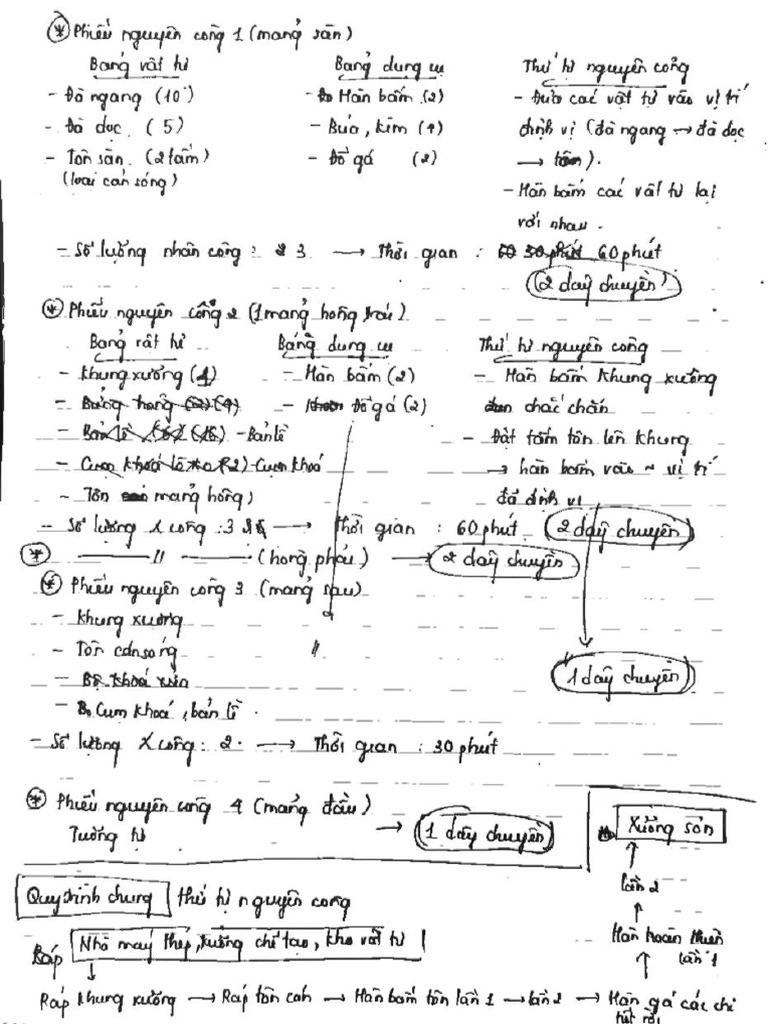 * Phiếu nguyên công 1 (mảng sàn)
Bảng vật tư Bảng dụng cụ Thứ tự nguyên công
- Đà ngang (10) - Hàn bấm (2) - Đưa các vật tư vào vị trí
- Đà dọc. (5) - Búa, kìm (4) định vị (đà ngang → đà dọc
- Tôn sàn. (2 tấm) - Đồ gá (2) → tôn).
(loại cán sóng) - Hàn bấm các vật tư lại
với nhau.
- Số lượng nhân công: 3 → Thời gian : 60 phút
(2 dây chuyền)
* Phiếu nguyên công 2 (1 mảng hông trái)
Bảng vật tư Bảng dụng cụ Thứ tự nguyên công
- Khung xương (1) - Hàn bấm (2) - Hàn bấm khung xương
- Bửng hông (4) - Đồ gá (2) chắc chắn
- Bản lề (16) - Bản lề - Đặt tấm tôn lên khung
- Cụm khoá (2) - Cụm khoá → hàn bấm vào ~ vị trí
- Tôn mảng hông, đã định vị
- Số lượng công : 3 → Thời gian : 60 phút (2 dây chuyền)
* ——— // ——— (hông phải) → 2 dây chuyền
* Phiếu nguyên công 3 (mảng sau)
- Khung xương
- Tôn cán sóng //
- Bộ khoá 1 dây chuyền
- Cụm khoá, bản lề.
- Số lượng công : 2. → Thời gian : 30 phút
* Phiếu nguyên công 4 (mảng đầu)
Tương tự → 1 dây chuyền
Xưởng sơn
↑
lần 2
↑
Hàn hoàn thiện
lần 1
↑
Quy trình chung thứ tự nguyên công
Nhà máy thép, xưởng chế tạo, kho vật tư
↓
Ráp khung xương → Ráp tôn → Hàn bấm tôn lần 1 → lần 2 → Hàn gá các chi
tiết rời